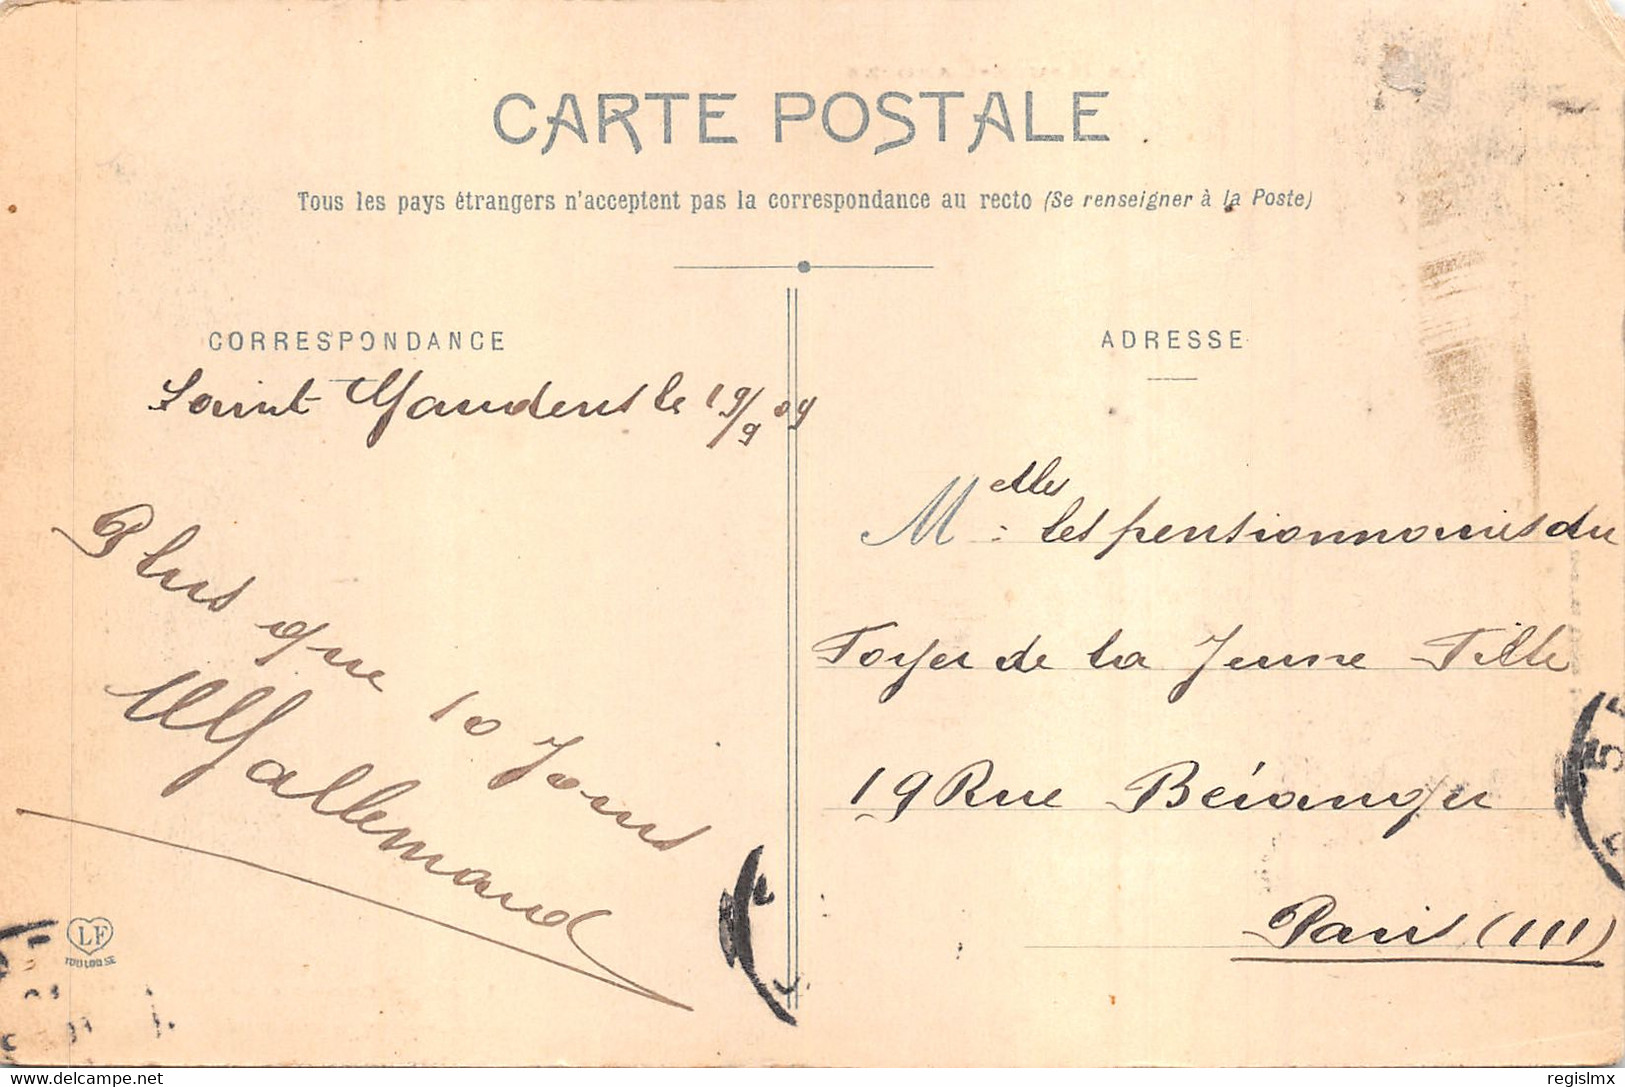 CARTE POSTALE
Tous les pays étrangers n'acceptent pas la correspondance au recto (Se renseigner à la Poste)
CORRESPONDANCE
ADRESSE
Saint Gaudens le 19/9 09
Plus que 10 Jours
Mallemand
Melles les pensionnaires du
Foyer de la Jeune Fille
19 Rue Béranger
Paris (III)
LF
TOULOUSE
delcampe.net
regislmx